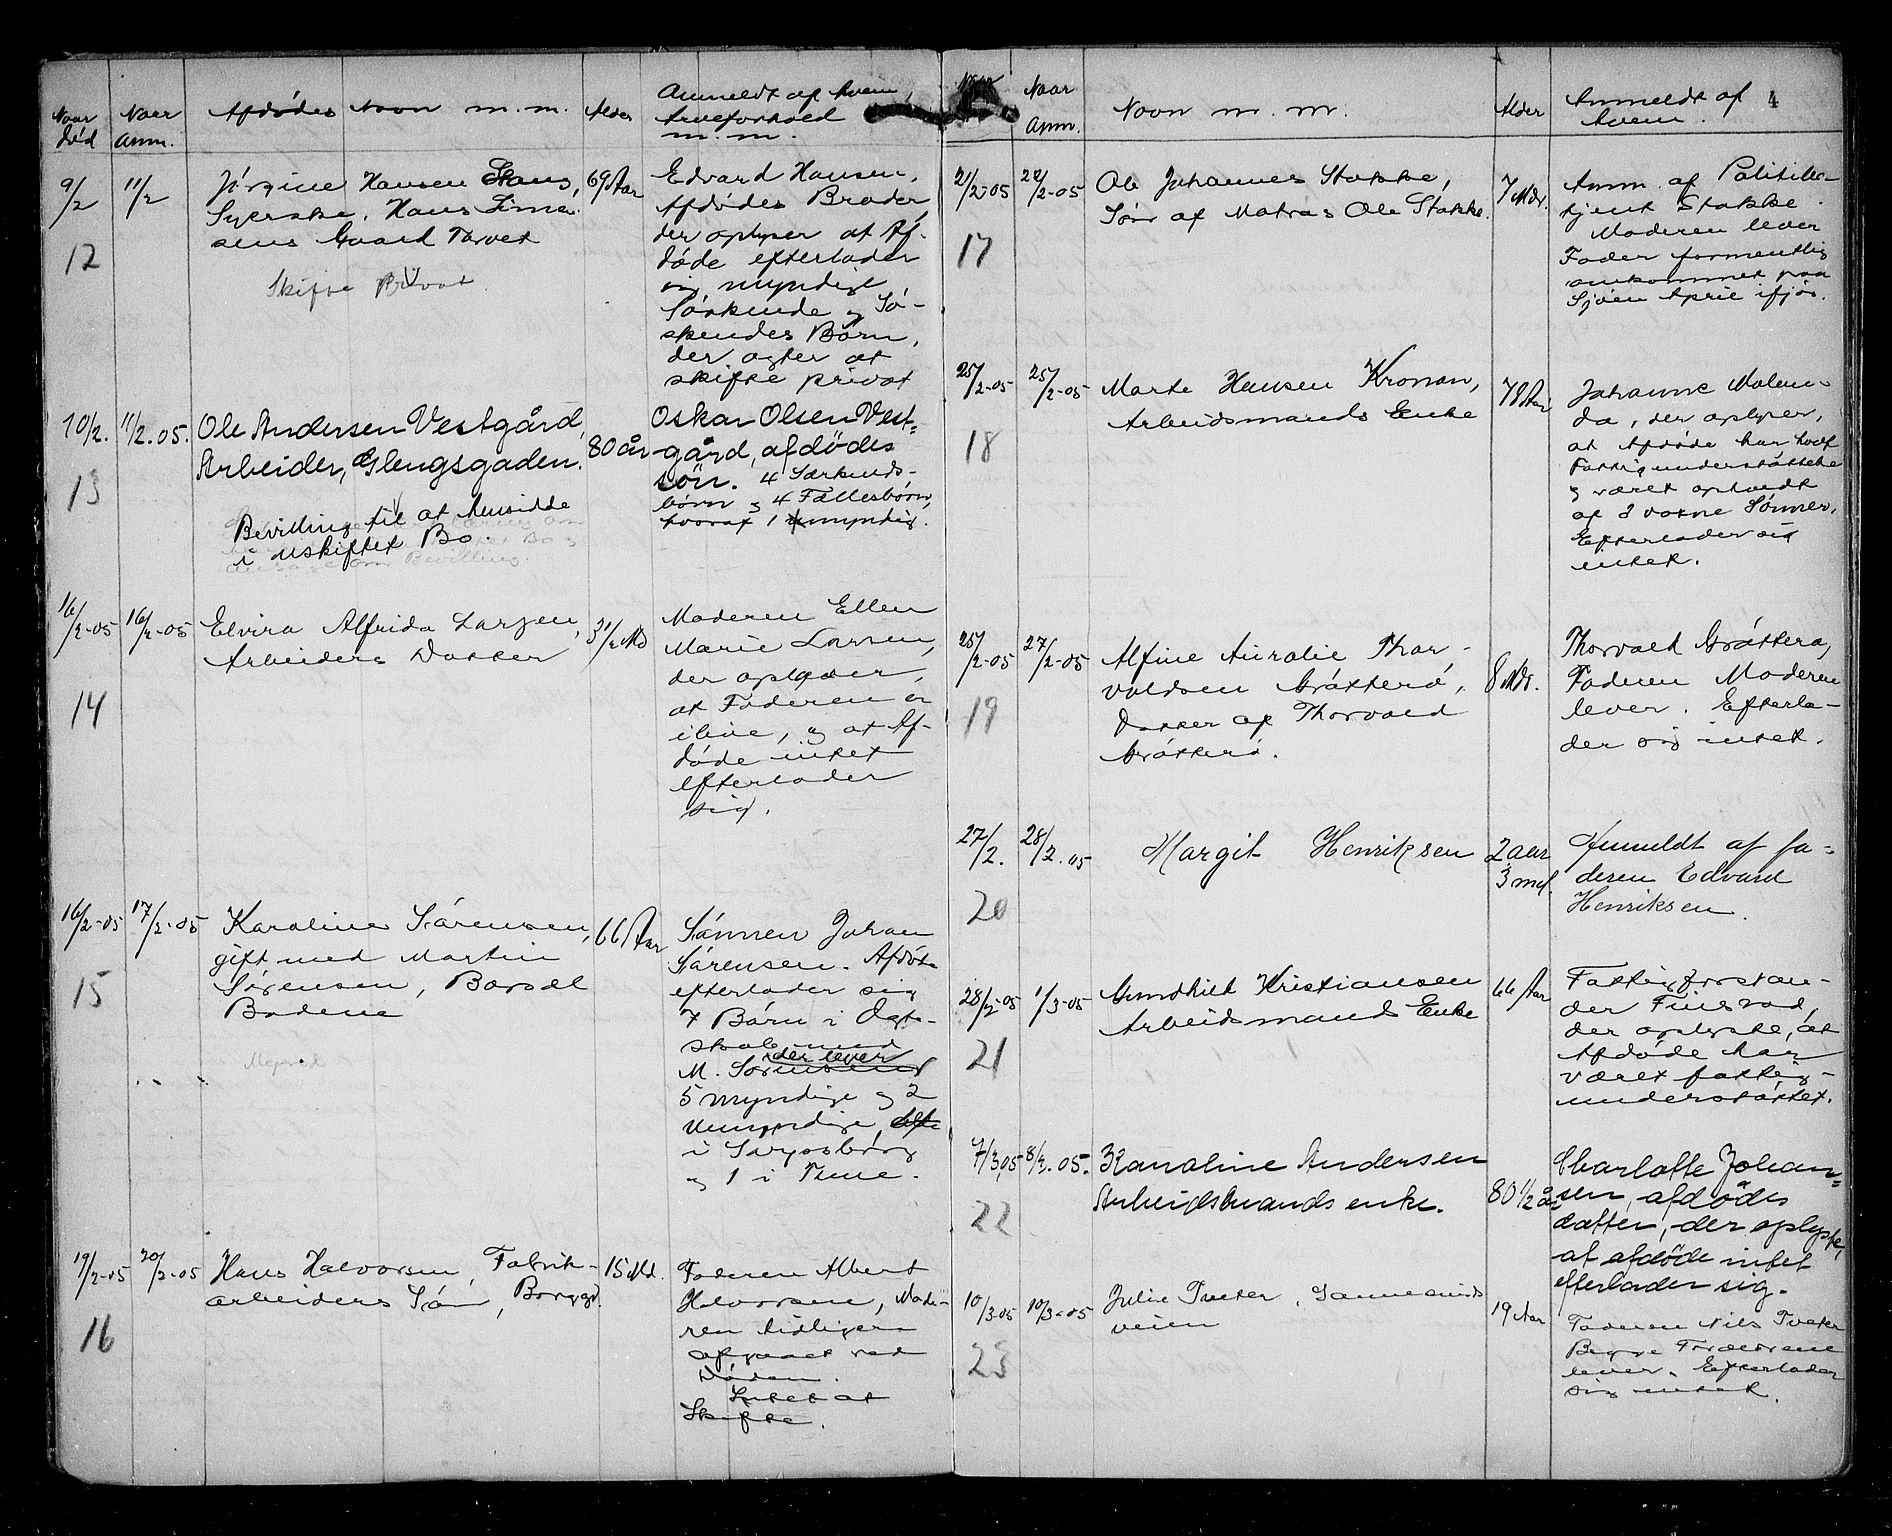 Naar
død
Naar
Anm.
Afdødes Navn m.m.
Alder
Anmeldt af hvem,
Arveforhold
m.m.
9/2
11/2
12
Jörgine Hansen
Syerske, Hans
sens Gaard Torvet
Skifte Privat
69 Aar
Edvard Hansen,
Afdödes Broder,
der oplyser at Af-
döde efterlader
sig myndige
Söskende og Sö-
skendes Börn,
der agter at
skifte privat
10/2.
11/2.05.
13
Ole Andersen Vestgård,
Arbeider, Glengsgaden.
Bevilling til at hensidde
i uskiftet Bo.
80 år
Oskar Olsen Vest=
gård, afdödes
sön. 4 Særkunds-
börn og 4 Fællesbörn,
hvoraf 1 umyndig.
16/2-05
16/2-05
14
Elvira Alfrida Larsen,
Arbeiders Datter
3 1/2 Md
Moderen Ellen
Marie Larsen,
der oplyser,
at Faderen er
ilive, og at Af-
döde intet
efterlader
sig.
16/2-05
17/2-05
15
Karoline Sörensen,
gift med Martin
Sörensen,
66 Aar
Sönnen Johan
Sörensen. Afdöde
efterlader sig
7 Börn i Ægte-
skab med
M. Sörensen
der lever
5 myndige og 2
umyndige,
i Sarpsborg
og 1 i Tune.
19/2-05
20/2-05
16
Hans Halvorsen, Fabrik-
arbeiders Sön, Borggd.
15 Md.
Faderen Albert
Halvorsen, Mode-
ren tidligere
afgaaet ved
Döden.
Intet at
Skifte.
Naar
Anm.
Navn m. m.
Alder
Anmeldt af
hvem.
4
21/2-05
22/2-05
17
Ole Johannes Stokke,
Sön af Matros Ole Stokke.
7 Mdr.
Anm. af Politibe-
tjent Stokke.
Moderen lever
Fader formentlig
omkommet paa
Sjöen April ifjor.
25/2-05
25/2-05
18
Marte Hansen
Arbeidsmands Enke
78 Aar
Johanne
da, der oplyser,
at Afdöde har havt
Fattigunderstöttelse
og været
af 2 voxne Sönner.
Efterlader sig
intet.
25/2-05
27/2-05
19
Alfine Auralie Thor-
valdsen Gråtterö,
Datter af Thorvald
Gråtterö.
8 Mdr.
Thorvald Gråtterö,
Faderen Moderen
lever. Efterla-
der sig intet.
27/2.
28/2.05
20
Margit Henriksen
2 aar
3 md.
Anmeldt af fa-
deren Edvard
Henriksen.
28/2-05
1/3-05
21
Gundhild Kristiansen
Arbeidsmands Enke
66 Aar
Fattigforstan-
der
der oplyste, at
Afdöde har
været fattig-
understöttet.
7/3.05
8/3.05.
22
Karoline Andersen
Arbeidsmands enke.
80 1/2 år
Charlotte Johan=
sen, afdödes
datter, der oplyste,
at afdöde intet
efterlader sig.
10/3-05
10/3-05
23
Julie Tveter,
veien
19 Aar
Faderen Nils Tveter
Begge Forældrene
lever. Efterlader
sig intet.